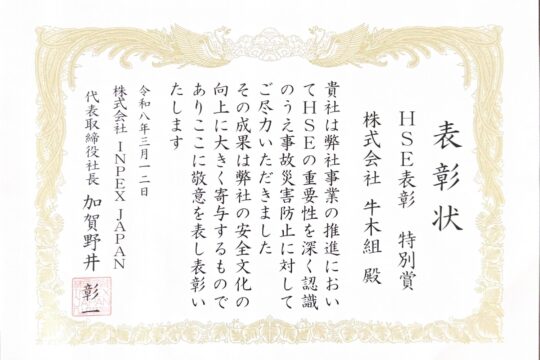 表彰状
HSE表彰 特別賞
株式会社 牛木組 殿
貴社は弊社事業の推進におい
てHSEの重要性を深く認識
のうえ事故災害防止に対して
ご尽力いただきました
その成果は弊社の安全文化の
向上に大きく寄与するもので
ありここに敬意を表し表彰い
たします
令和八年三月一二日
株式会社 INPEX JAPAN
代表取締役社長 加賀野井 彰一